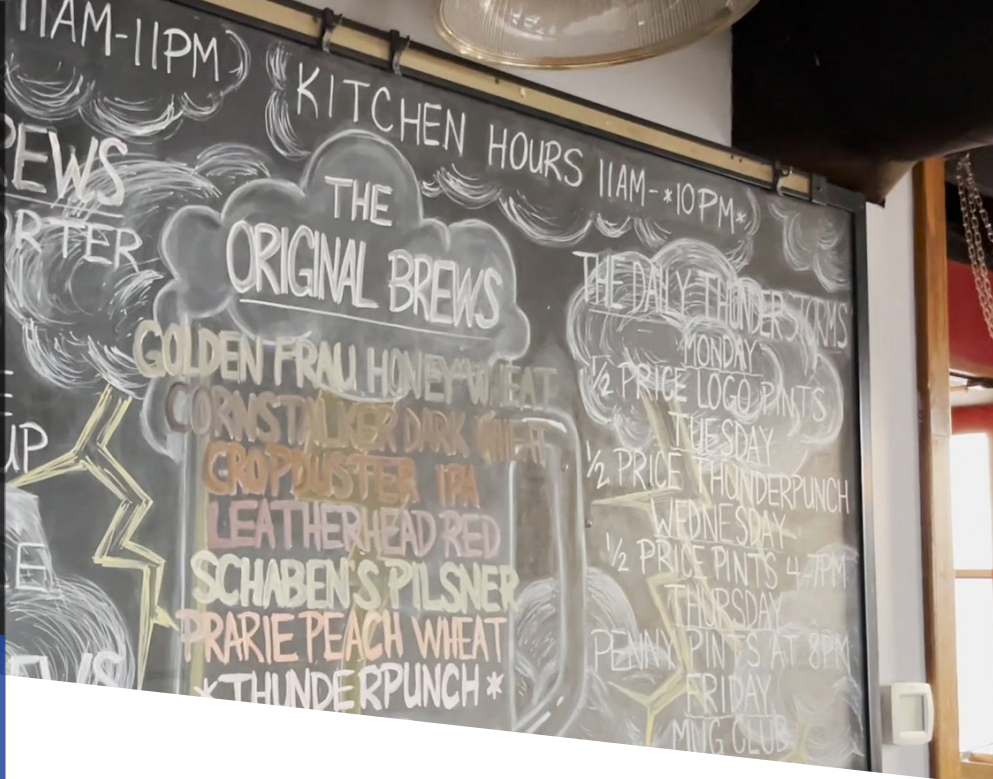 11AM-11PM
KITCHEN HOURS 11AM-*10PM*
EWS
RTER
UP
E
EWS
THE
ORIGINAL BREWS
GOLDEN FRAU HONEY WHEAT
CORNSTALKER DARK WHEAT
CROPDUSTER IPA
LEATHERHEAD RED
SCHABEN'S PILSNER
PRARIE PEACH WHEAT
*THUNDERPUNCH*
THE DAILY THUNDERSTORMS
MONDAY
1/2 PRICE LOGO PINTS
TUESDAY
1/2 PRICE THUNDERPUNCH
WEDNESDAY
1/2 PRICE PINTS 4-7PM
THURSDAY
PENNY PINTS AT 8PM
FRIDAY
MUG CLUB